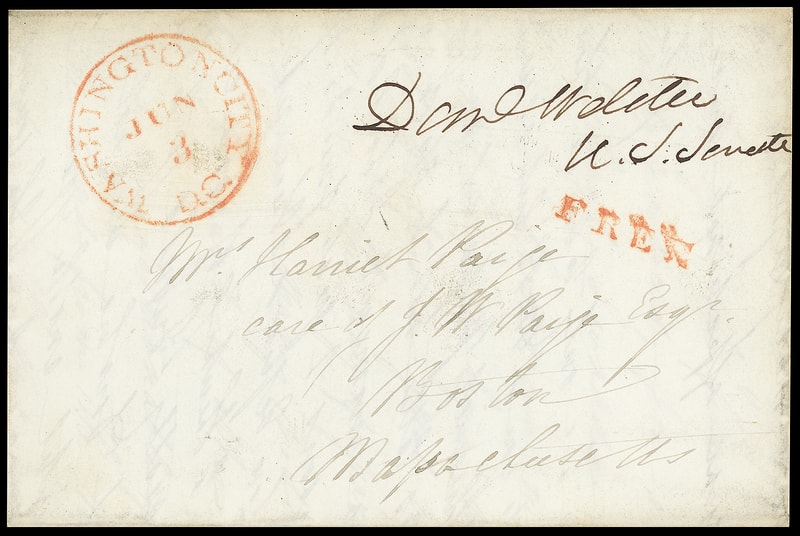 WASHINGTON CITY D.C.
JUN
3
Danl Webster
U.S. Senate
FREE
Mrs Harriet Paige
care of J. W. Paige Esqr.
Boston
Massachusetts